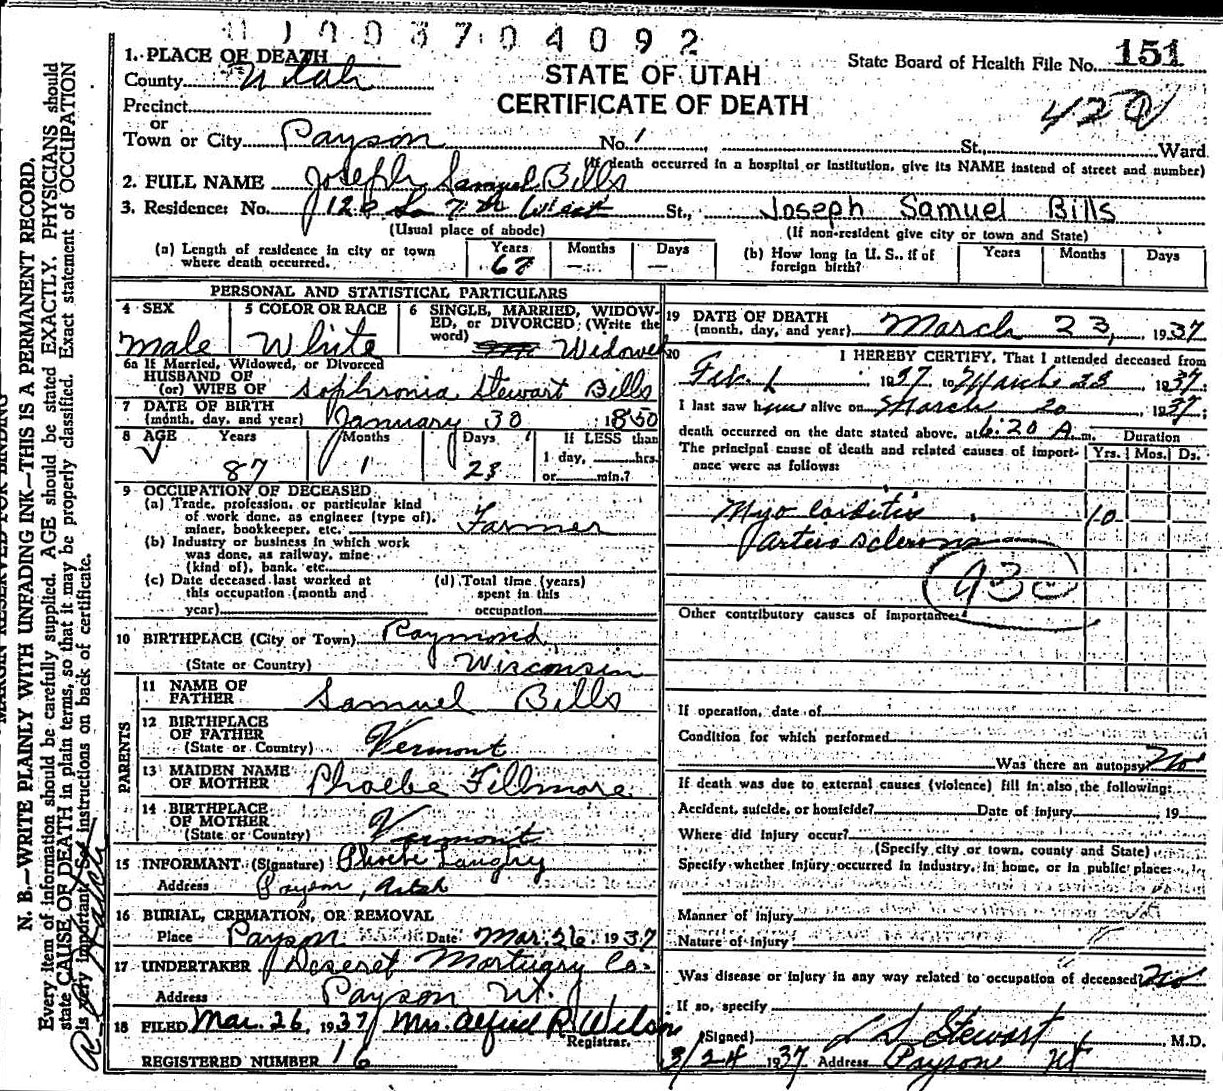 0037 04092
1. PLACE OF DEATH
County Utah
STATE OF UTAH
CERTIFICATE OF DEATH
State Board of Health File No. 151
Precinct
or
Town or City Payson No. 1 St., Ward
(If death occurred in a hospital or institution, give its NAME instead of street and number)
2. FULL NAME Joseph Samuel Bills
3. Residence: No. West St., Joseph Samuel Bills
(Usual place of abode) (If non-resident give city or town and State)
(a) Length of residence in city or town where death occurred. Years 67 Months — Days —
(b) How long in U. S., if of foreign birth? Years Months Days
PERSONAL AND STATISTICAL PARTICULARS
4 SEX Male
5 COLOR OR RACE White
6 SINGLE, MARRIED, WIDOWED, or DIVORCED (Write the word) Widowed
6a If Married, Widowed, or Divorced
HUSBAND OF
(or) WIFE OF Sophronia Stewart Bills
7 DATE OF BIRTH
(month, day, and year) January 30 1850
8 AGE Years 87 Months 1 Days 23 If LESS than 1 day, hrs. or min.?
9 OCCUPATION OF DECEASED
(a) Trade, profession, or particular kind
of work done, as engineer (type of),
miner, bookkeeper, etc. Farmer
(b) Industry or business in which work
was done, as railway, mine
(kind of), bank, etc.
(c) Date deceased last worked at
this occupation (month and
year)
(d) Total time (years)
spent in this
occupation
10 BIRTHPLACE (City or Town) Raymond
(State or Country) Wisconsin
PARENTS
11 NAME OF
FATHER Samuel Bills
12 BIRTHPLACE
OF FATHER
(State or Country) Vermont
13 MAIDEN NAME
OF MOTHER Phoebe Fillmore
14 BIRTHPLACE
OF MOTHER
(State or Country) Vermont
15 INFORMANT (Signature) Phoebe
Address Payson, Utah
16 BURIAL, CREMATION, OR REMOVAL
Place Payson Date Mar. 26 1937
17 UNDERTAKER Deseret Mortuary Co.
Address Payson Ut.
18 FILED Mar. 26, 1937 Mrs. Alfred R. Wilson
Registrar.
REGISTERED NUMBER 16
19 DATE OF DEATH
(month, day, and year) March 23, 1937
20 I HEREBY CERTIFY, That I attended deceased from
Feb. 1 1937 to March 23 1937
I last saw him alive on March 20 1937
death occurred on the date stated above, at 6:20 A m. Duration
The principal cause of death and related causes of importance were as follows: Yrs. Mos. Ds.
Myo carditis 10
Arterio sclerosis
930
Other contributory causes of importance:
If operation, date of
Condition for which performed
Was there an autopsy No
If death was due to external causes (violence) fill in also the following:
Accident, suicide, or homicide? Date of injury 19
Where did injury occur?
(Specify city or town, county and State)
Specify whether injury occurred in industry, in home, or in public place:
Manner of injury
Nature of injury
Was disease or injury in any way related to occupation of deceased? No
If so, specify
(Signed) L D Stewart, M.D.
3/24 1937 Address Payson Ut
N. B.—WRITE PLAINLY WITH UNFADING INK—THIS IS A PERMANENT RECORD.
Every item of information should be carefully supplied. AGE should be stated EXACTLY. PHYSICIANS should
state CAUSE OF DEATH in plain terms, so that it may be properly classified. Exact statement of OCCUPATION
is very important. See instructions on back of certificate.